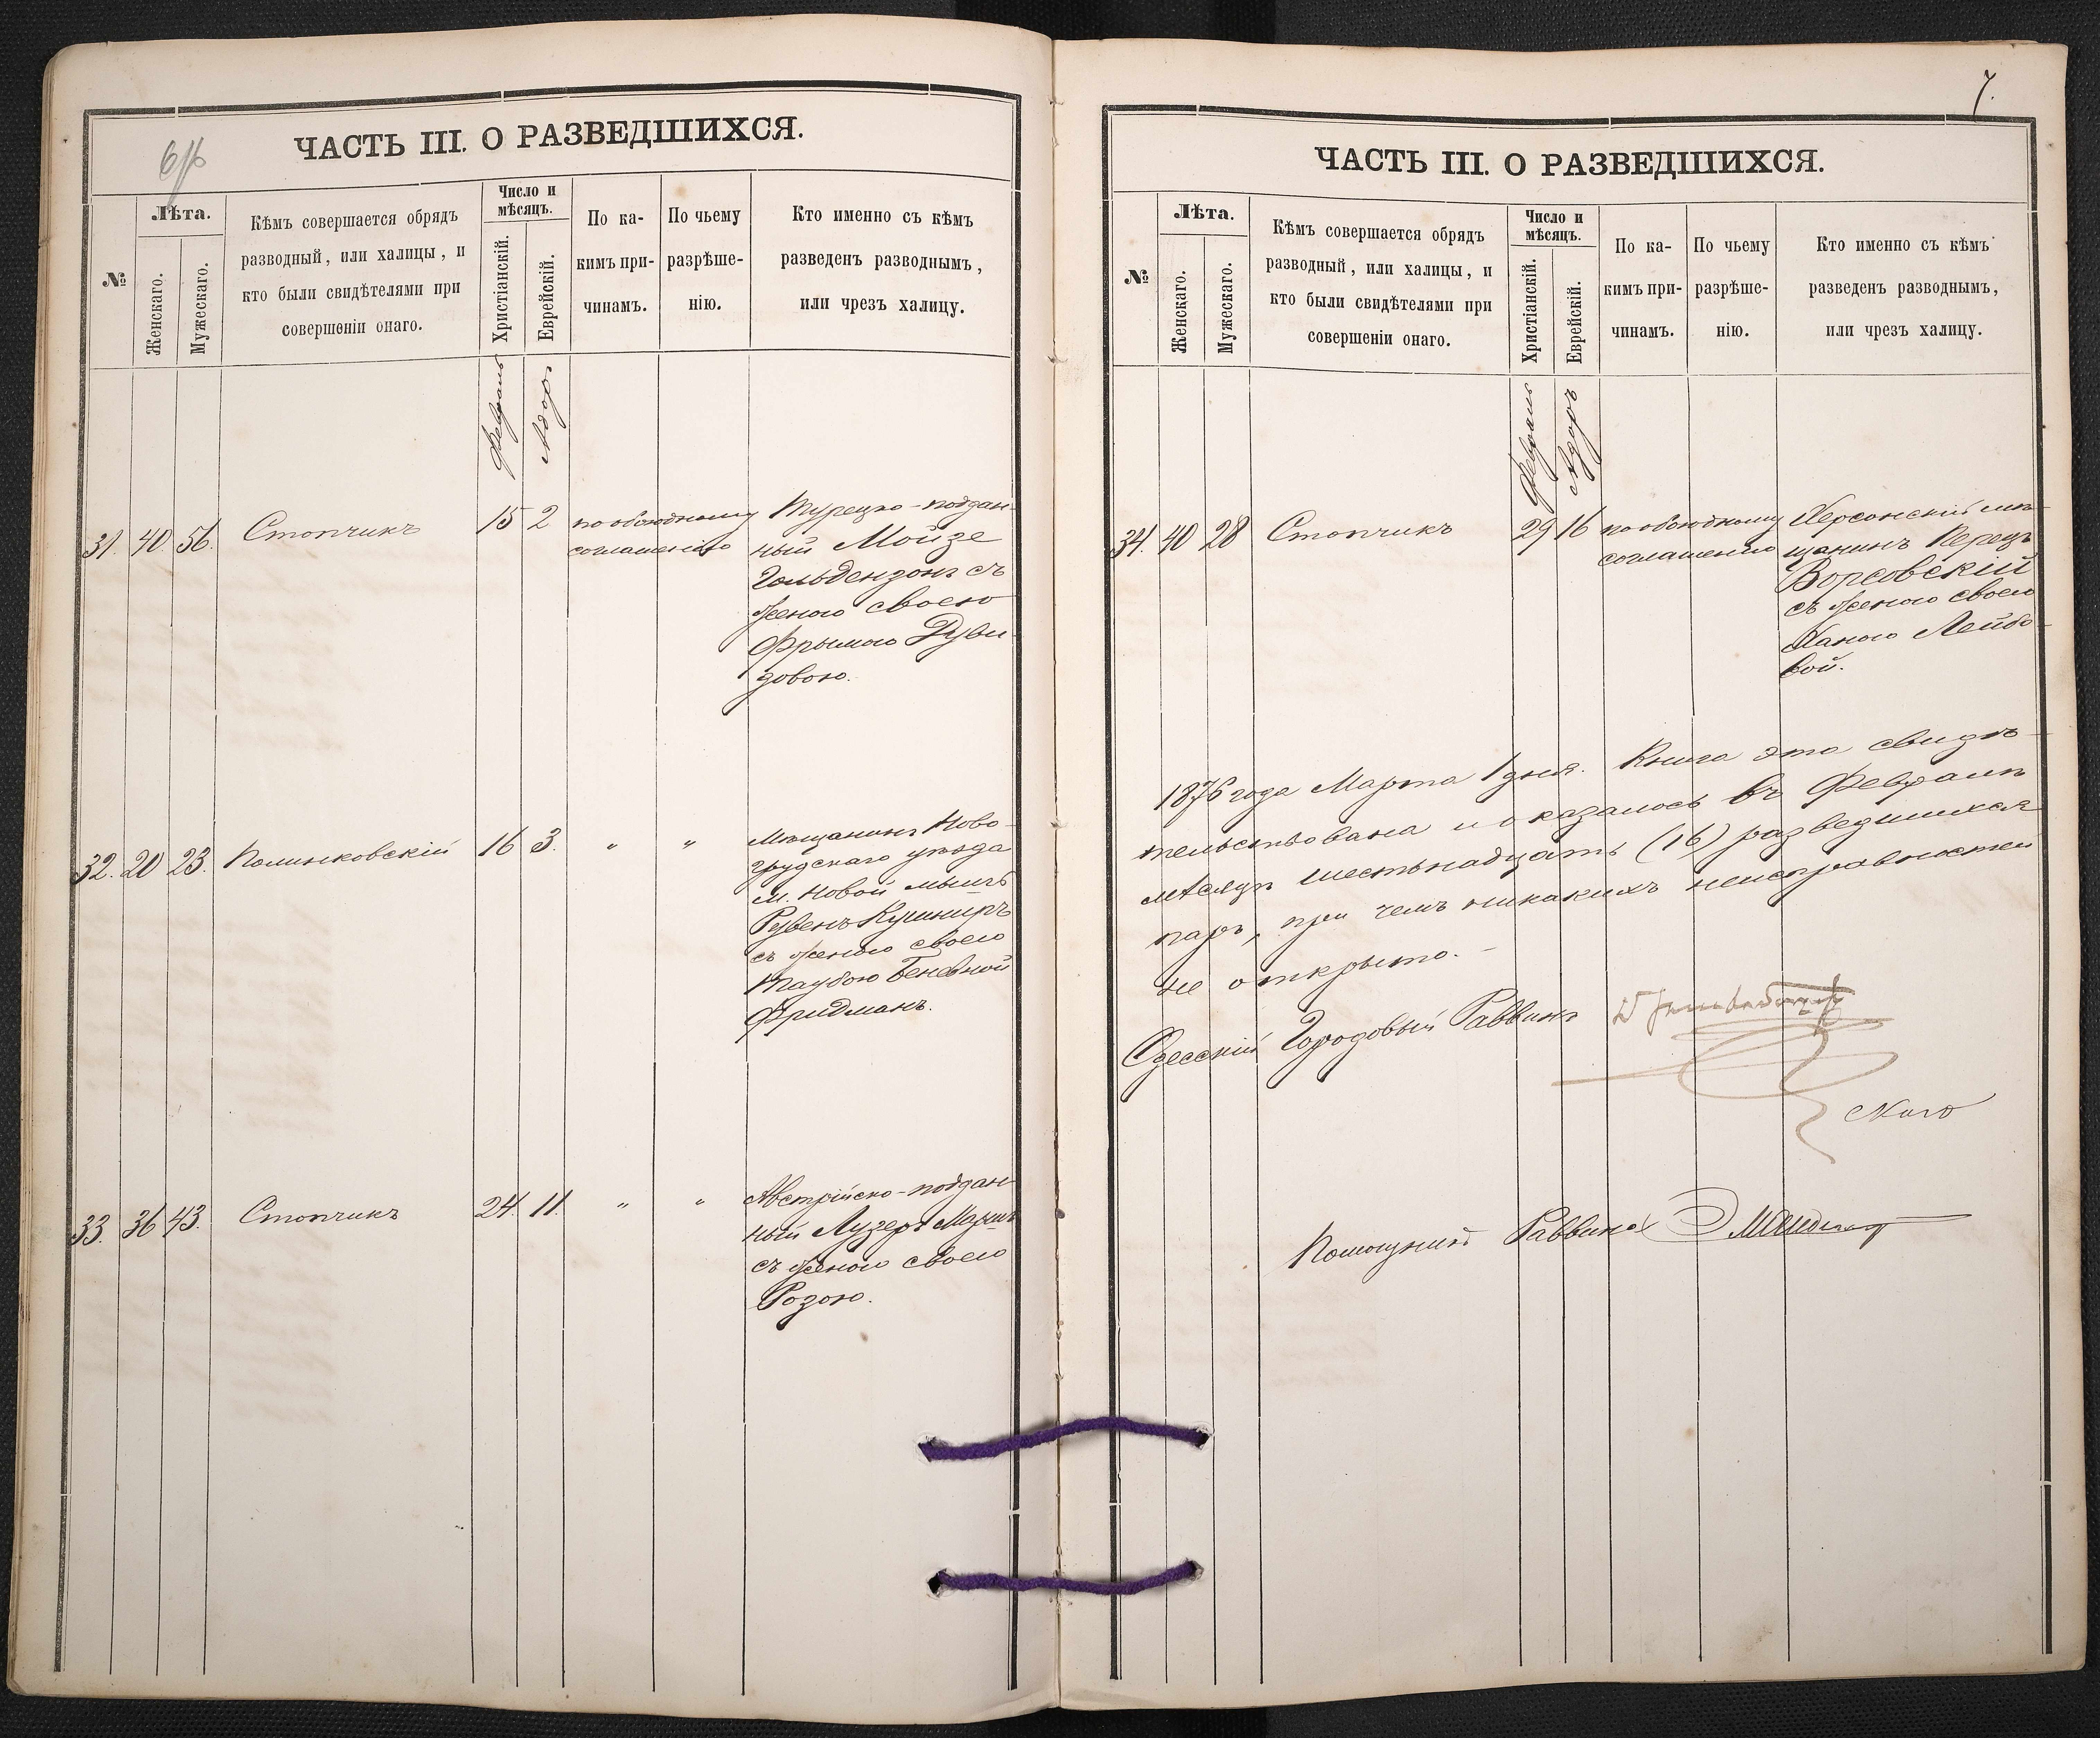 ЧАСТЬ III. О РАЗВЕДШИХСЯ.
№
Лѣта.
Женскаго.
Мужескаго.
Кѣмъ совершается обрядъ
разводный, или халицы, и
кто были свидѣтелями при
совершеніи онаго.
Число и
мѣсяцъ.
Христіанскій.
Еврейскій.
По ка-
кимъ при-
чинамъ.
По чьему
разрѣше-
нію.
Кто именно съ кѣмъ
разведенъ разводнымъ,
или чрезъ халицу.
Февраль
Адоръ
31. 40. 56. Стопчикъ 15 2 по обоюдному Турецко-поддан-
соглашенію ный Мойзе
Гольдензонъ съ
женою своею
Фрымою Дуви-
довою.
32. 20 23. Полинковскій 16 3. " " Мѣщанинъ Ново-
грудскаго уѣзда
м. Новой мышъ
Рувенъ Кушниръ
съ женою своею
Таубою Беневной
Фридманъ.
33. 36 43. Стопчикъ 24. 11. " " Австрійско-поддан-
ный Лузеръ
съ женою своею
Розою.
7.
ЧАСТЬ III. О РАЗВЕДШИХСЯ.
№
Лѣта.
Женскаго.
Мужескаго.
Кѣмъ совершается обрядъ
разводный, или халицы, и
кто были свидѣтелями при
совершеніи онаго.
Число и
мѣсяцъ.
Христіанскій.
Еврейскій.
По ка-
кимъ при-
чинамъ.
По чьему
разрѣше-
нію.
Кто именно съ кѣмъ
разведенъ разводнымъ,
или чрезъ халицу.
Февраль
Адоръ
34. 40 28 Стопчикъ 29 16 по обоюдному Херсонскій мѣ-
соглашенію щанинъ Перецъ
Ворсовскій
съ женою своею
Ханою Лейбо-
вой.
1876 года Марта 1 дня. Книга эта свидѣ-
тельствована и оказалось въ Февралѣ
мѣсяцѣ шестьнадцать (16) разведшихся
паръ, при чемъ никакихъ неисправностей
не открыто.-
Одесскій Городовый Раввинъ
Помощникъ Раввина